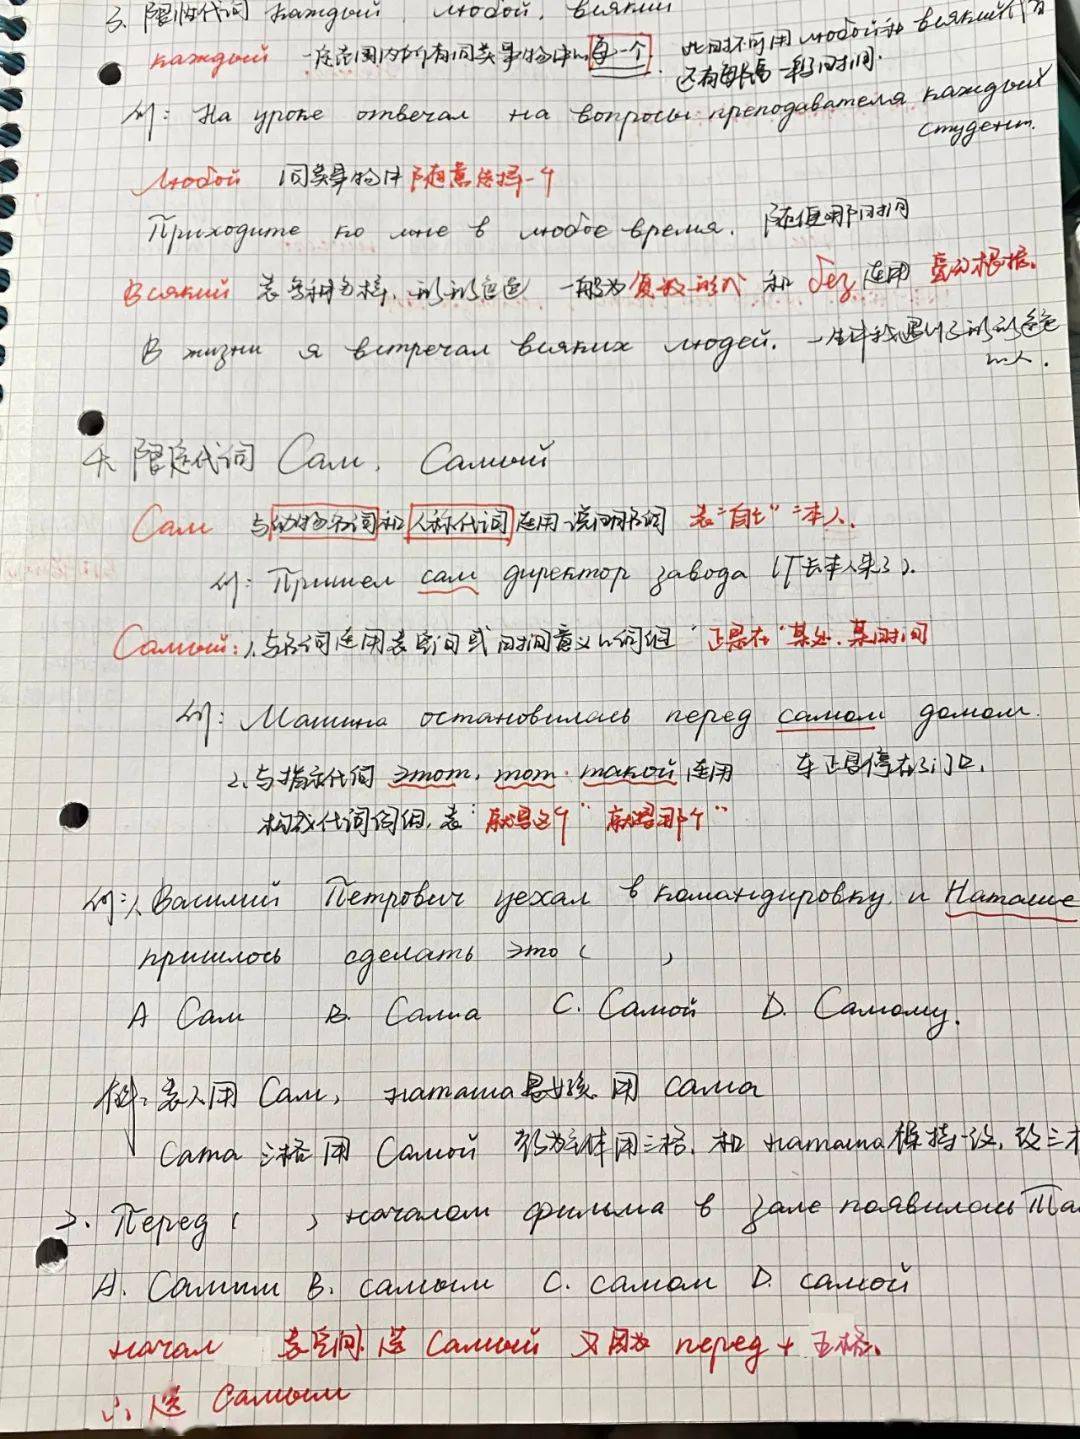 3. 限定代词 каждый, любой, всякий
каждый 一定范围内所有同类事物中的每一个. 此时不可用 любой 和 всякий 代替
还有每隔一段时间.
例: На уроке отвечал на вопросы преподавателя каждый
студент.
Любой 同类事物中随意选择一个
Приходите ко мне в любое время. 随便哪个时间
Всякий 表各种各样, 形形色色 一般为复数形式 和 без 连用 毫无根据.
В жизни я встречал всяких людей. 一生中我遇到了形形色色
的人.
4. 限定代词 Сам, Самый
Сам 与动物名词和人称代词连用说明名词 表"自己" "本人.
例: Пришел сам директор завода (厂长本人来了).
Самый: 1.与名词连用表空间或时间意义的词组 "正是在"某处.某时间
例: Машина остановилась перед самом домом.
2.与指示代词 этот, тот. такой 连用 车正是停在了门口.
构成代词词组, 表: "就是这个" "就是那个"
例:1. Василий Петрович уехал в командировку, и Наташе
пришлось сделать это ( )
A Сам B. Сама C. Самой D. Самому.
析: 表人用 Сам, наташа是女孩 用 сама
Сама 三格 用 Самой 作为主体用三格, 和 наташа保持一致, 改三格
2. Перед ( ) началом фильма в зале появилась
A. Самим B. самым C. самом D. самой
начал 表空间 选 Самый 又因为 перед + 五格.
∴ 选 Самым